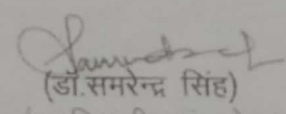 (डॉ.समरेन्द्र सिंह)